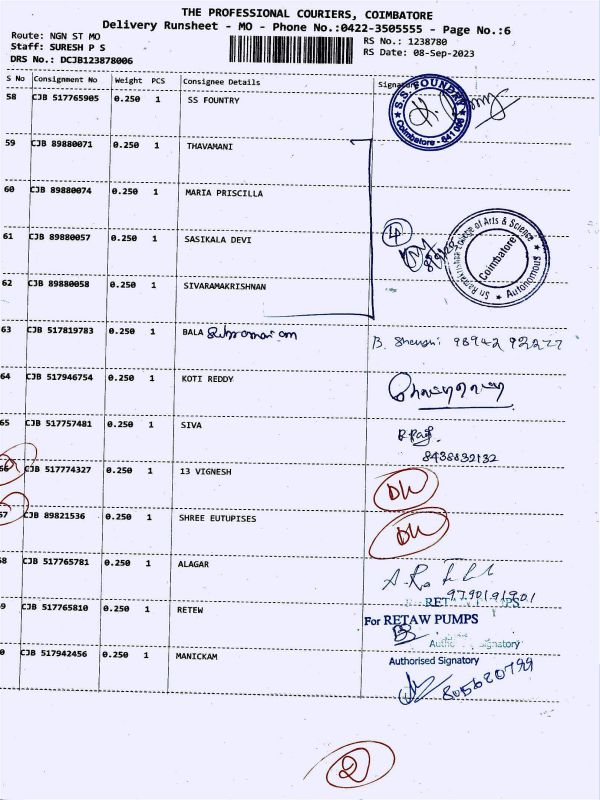 THE PROFESSIONAL COURIERS, COIMBATORE
Delivery Runsheet - MO - Phone No.:0422-3505555 - Page No.:6
Route: NGN ST MO
Staff: SURESH P S
DRS No.: DCJB123878006
RS No.: 1238780
RS Date: 08-Sep-2023
S No Consignment No Weight PCS Consignee Details Signature
58 CJB 517765905 0.250 1 SS FOUNTRY
S.S. FOUNDRY
Coimbatore - 641 006
59 CJB 89880071 0.250 1 THAVAMANI
60 CJB 89880074 0.250 1 MARIA PRISCILLA
61 CJB 89880057 0.250 1 SASIKALA DEVI
4
Sri Ramakrishna College of Arts & Science
Coimbatore
Autonomous
62 CJB 89880058 0.250 1 SIVARAMAKRISHNAN
63 CJB 517819783 0.250 1 BALA Subramaniam
64 CJB 517946754 0.250 1 KOTI REDDY
65 CJB 517757481 0.250 1 SIVA
8438832132
66 CJB 517774327 0.250 1 13 VIGNESH DL
67 CJB 89821536 0.250 1 SHREE EUTUPISES DL
8 CJB 517765781 0.250 1 ALAGAR
9790191901
9 CJB 517765810 0.250 1 RETEW
For RETAW PUMPS
Authorised Signatory
0 CJB 517942456 0.250 1 MANICKAM
2